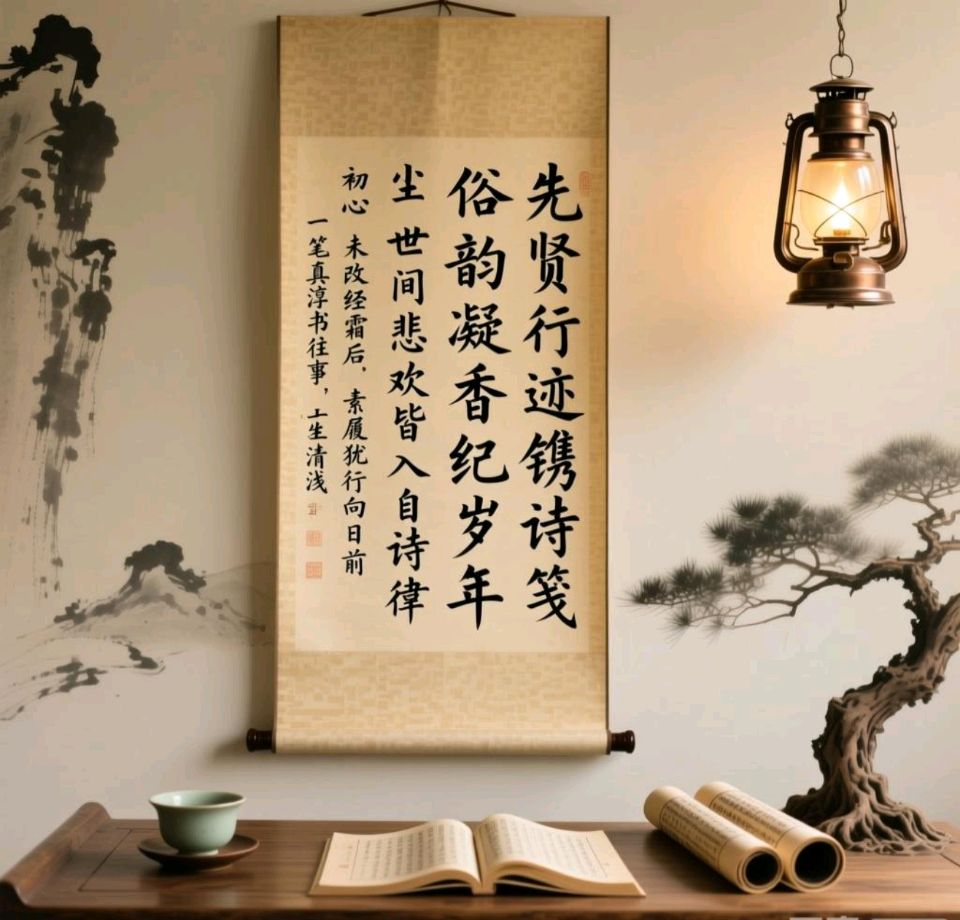 先贤行迹镌诗笺
俗韵凝香纪岁年
尘世间悲欢皆入自诗律
初心未改经霜后，素履犹行向日前
一笔真淳书往事，生清浅